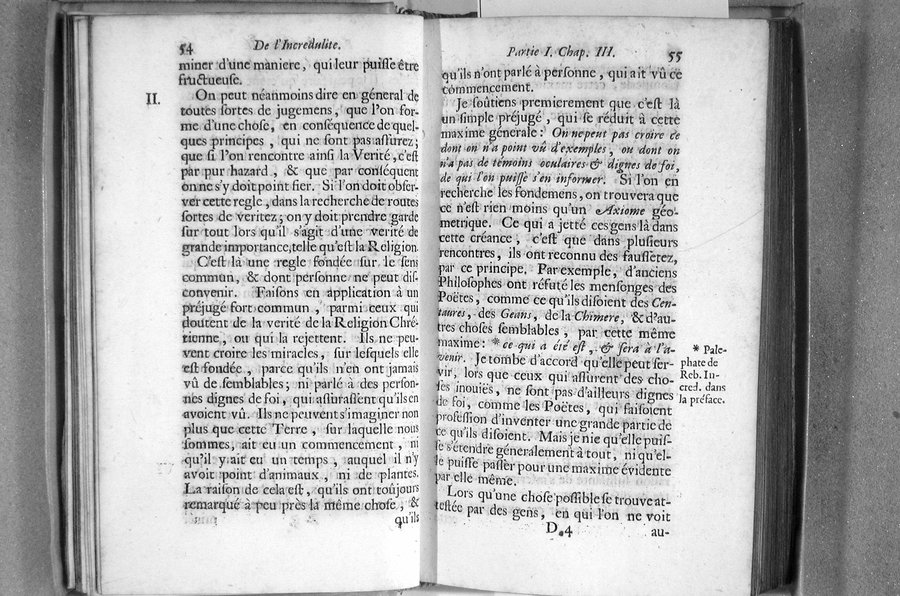 54 De l'Incredulite.
miner d'une maniere, qui leur puisse être
fructueuse.
II. On peut néanmoins dire en géneral de
toutes sortes de jugemens, que l'on for-
me d'une chose, en conséquence de quel-
ques principes, qui ne sont pas assurez;
que si l'on rencontre ainsi la Verité, c'est
par pur hazard, & que par conséquent
on ne s'y doit point fier. Si l'on doit obser-
ver cette regle, dans la recherche de toutes
sortes de veritez; on y doit prendre garde
sur tout lors qu'il s'agit d'une verité de
grande importance, telle qu'est la Religion.
C'est là une regle fondée sur le sens
commun, & dont personne ne peut dis-
convenir. Faisons en application à un
préjugé fort commun, parmi ceux qui
doutent de la verité de la Religion Chré-
tienne, ou qui la rejettent. Ils ne peu-
vent croire les miracles, sur lesquels elle
est fondée, parce qu'ils n'en ont jamais
vû de semblables; ni parlé à des person-
nes dignes de foi, qui assurassent qu'ils en
avoient vû. Ils ne peuvent s'imaginer non
plus que cette Terre, sur laquelle nous
sommes, ait eu un commencement, ni
qu'il y ait eu un temps, auquel il n'y
avoit point d'animaux, ni de plantes.
La raison de cela est, qu'ils ont toûjours
remarqué à peu près la même chose, &
qu'ils
Partie I. Chap. III. 55
qu'ils n'ont parlé à personne, qui ait vû ce
commencement.
Je soûtiens premierement que c'est là
un simple préjugé, qui se réduit à cette
maxime génerale: On ne peut pas croire ce
dont on n'a point vû d'exemples, ou dont on
n'a pas de témoins oculaires & dignes de foi,
de qui l'on puisse s'en informer. Si l'on en
recherche les fondemens, on trouvera que
ce n'est rien moins qu'un Axiome géo-
metrique. Ce qui a jetté ces gens là dans
cette créance, c'est que dans plusieurs
rencontres, ils ont reconnu des faussetez,
par ce principe. Par exemple, d'anciens
Philosophes ont réfuté les mensonges des
Poëtes, comme ce qu'ils disoient des Cen-
taures, des Geans, de la Chimere, & d'au-
tres choses semblables, par cette même
maxime: * ce qui a été est, & sera à l'a-
venir. Je tombe d'accord qu'elle peut ser-
vir, lors que ceux qui assurent des cho-
ses inouïes, ne sont pas d'ailleurs dignes
de foi, comme les Poëtes, qui faisoient
profession d'inventer une grande partie de
ce qu'ils disoient. Mais je nie qu'elle puis-
se s'étendre géneralement à tout, ni qu'el-
le puisse passer pour une maxime évidente
par elle même.
Lors qu'une chose possible se trouve at-
testée par des gens, en qui l'on ne voit
D 4 au-
* Pale-
phate de
Reb. In-
cred. dans
la préface.